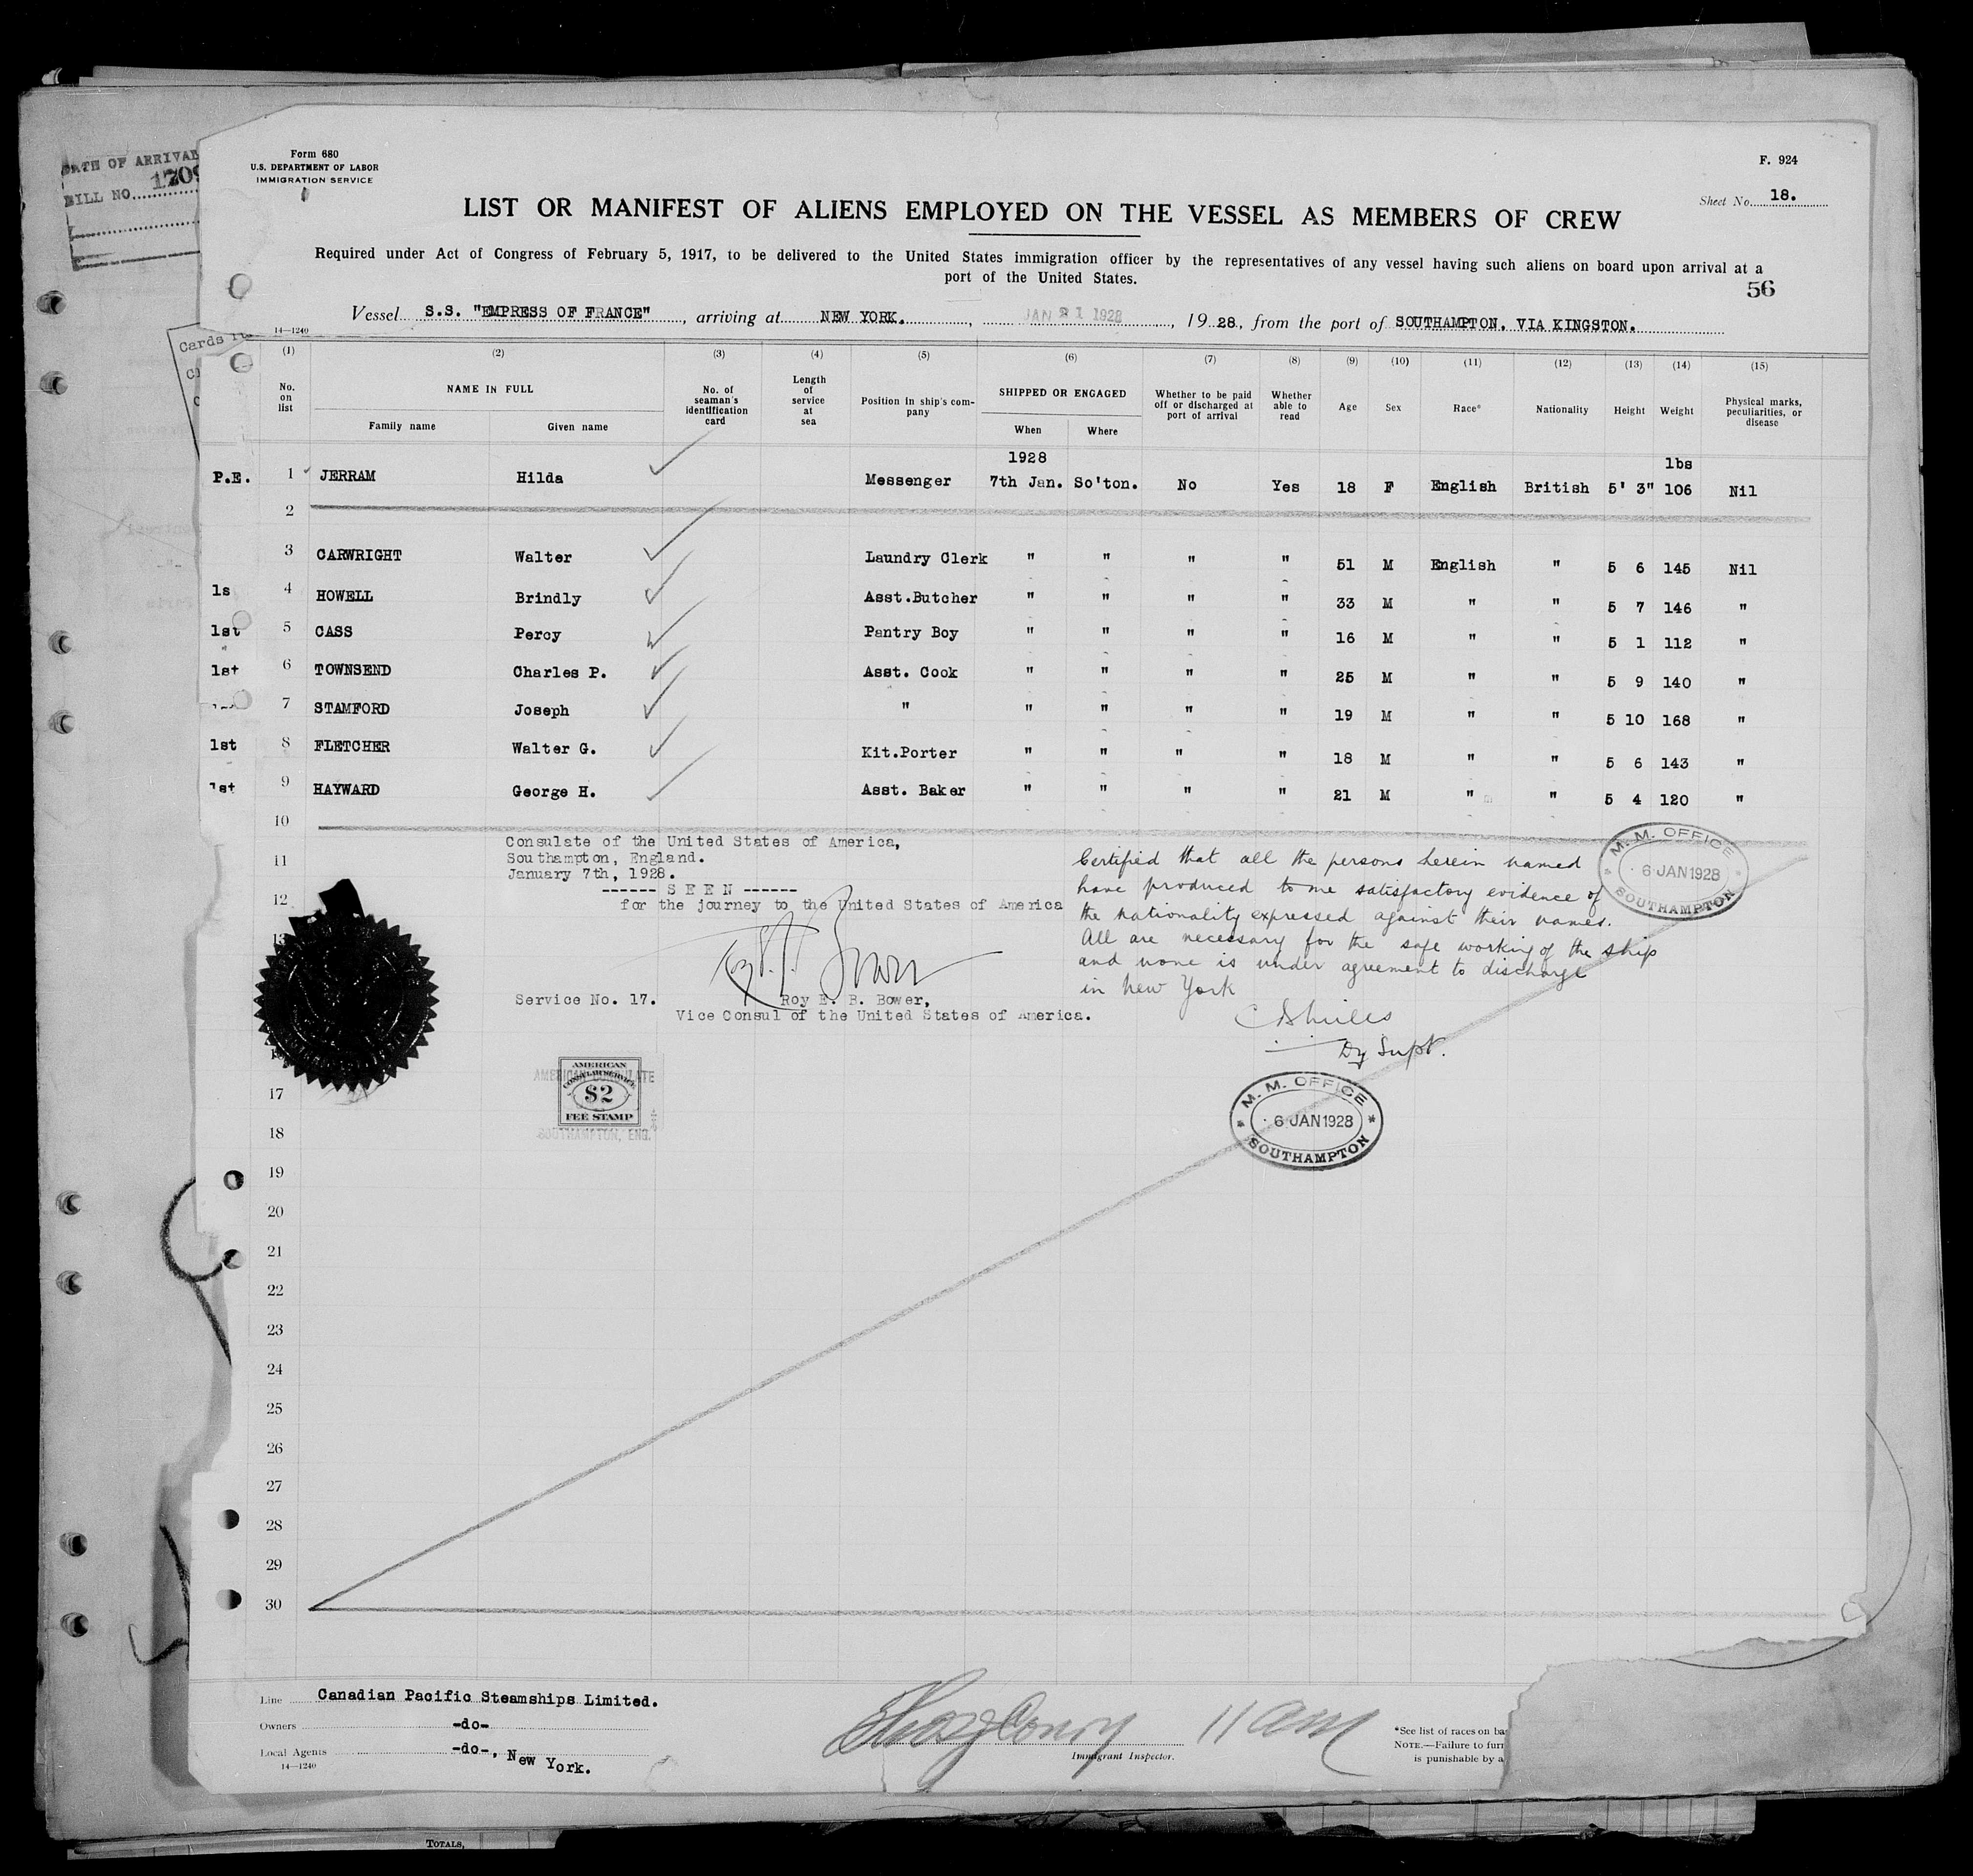 DATE OF ARRIVAL
BILL NO. 1209
Cards
Form 680
U.S. DEPARTMENT OF LABOR
IMMIGRATION SERVICE
F. 924
Sheet No. 18.
LIST OR MANIFEST OF ALIENS EMPLOYED ON THE VESSEL AS MEMBERS OF CREW
Required under Act of Congress of February 5, 1917, to be delivered to the United States immigration officer by the representatives of any vessel having such aliens on board upon arrival at a
port of the United States.
56
Vessel S.S. "EMPRESS OF FRANCE", arriving at NEW YORK., JAN 21 1928, 1928., from the port of SOUTHAMPTON. VIA KINGSTON.
14—1240
(1) (2) (3) (4) (5) (6) (7) (8) (9) (10) (11) (12) (13) (14) (15)
No. on list NAME IN FULL Family name Given name No. of seaman's identification card Length of service at sea Position in ship's company SHIPPED OR ENGAGED When Where Whether to be paid off or discharged at port of arrival Whether able to read Age Sex Race* Nationality Height Weight Physical marks, peculiarities, or disease
1928 lbs
P.E. 1 JERRAM Hilda Messenger 7th Jan. So'ton. No Yes 18 F English British 5' 3" 106 Nil
2
3 CARWRIGHT Walter Laundry Clerk " " " " 51 M English " 5 6 145 Nil
1s 4 HOWELL Brindly Asst.Butcher " " " " 33 M " " 5 7 146 "
1st 5 CASS Percy Pantry Boy " " " " 16 M " " 5 1 112 "
1st 6 TOWNSEND Charles P. Asst. Cook " " " " 25 M " " 5 9 140 "
7 STAMFORD Joseph " " " " " 19 M " " 5 10 168 "
1st 8 FLETCHER Walter G. Kit.Porter " " " " 18 M " " 5 6 143 "
1st 9 HAYWARD George H. Asst. Baker " " " " 21 M " " 5 4 120 "
10
11
12
17
18
19
20
21
22
23
24
25
26
27
28
29
30
Consulate of the United States of America,
Southampton, England.
January 7th, 1928.
------ S E E N ------
for the journey to the United States of America
Service No. 17.
Roy E. B. Bower,
Vice Consul of the United States of America.
AMERICAN
CONSULAR SERVICE
$2
FEE STAMP
AMERICAN CONSULATE
SOUTHAMPTON, ENG.
Certified that all the persons herein named
have produced to me satisfactory evidence of
the nationality expressed against their names.
All are necessary for the safe working of the ship
and none is under agreement to discharge
in New York
Dy Supt.
M. M. OFFICE
6 JAN 1928
SOUTHAMPTON
M. M. OFFICE
6 JAN 1928
SOUTHAMPTON
Line Canadian Pacific Steamships Limited.
Owners -do-
Local Agents -do-, New York.
14—1240
11 am
Immigrant Inspector.
*See list of races on
NOTE.—Failure to
is punishable by a
TOTALS,